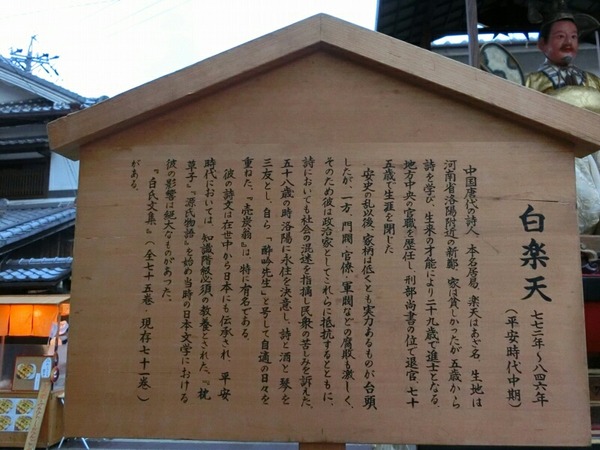 白楽天
七七二年～八四六年
（平安時代中期）
中国唐代の詩人、本名居易、楽天はあざ名、生地は
河南省洛陽附近の新鄭、家は貧しかったが五歳から
詩を学び、生来の才能により二十九歳で進士となる、
地方中央の官職を歴任し、刑部尚書の位で退官、七十
五歳で生涯を閉じた
安史の乱以後、家柄は低くとも実力あるものが台頭
したが、一方、門閥、官僚、軍閥などの腐敗も激しく、
そのため彼は政治家としてこれらに抵抗するとともに、
詩においても社会の混迷を指摘し民衆の苦しみを訴えた、
五十八歳の時洛陽に永住を決意し、詩と酒と琴を
三友とし、自ら「酔吟先生」と号して自適の日々を
重ねた、『売炭翁』は、特に有名である、
彼の詩文は在世中から日本にも伝承され、平安
時代においては、知識階級必須の教養とされた、『枕
草子』『源氏物語』を始め当時の日本文学における
彼の影響は絶大なものがあった、
『白氏文集』（全七十五巻・現存七十一巻）
がある、